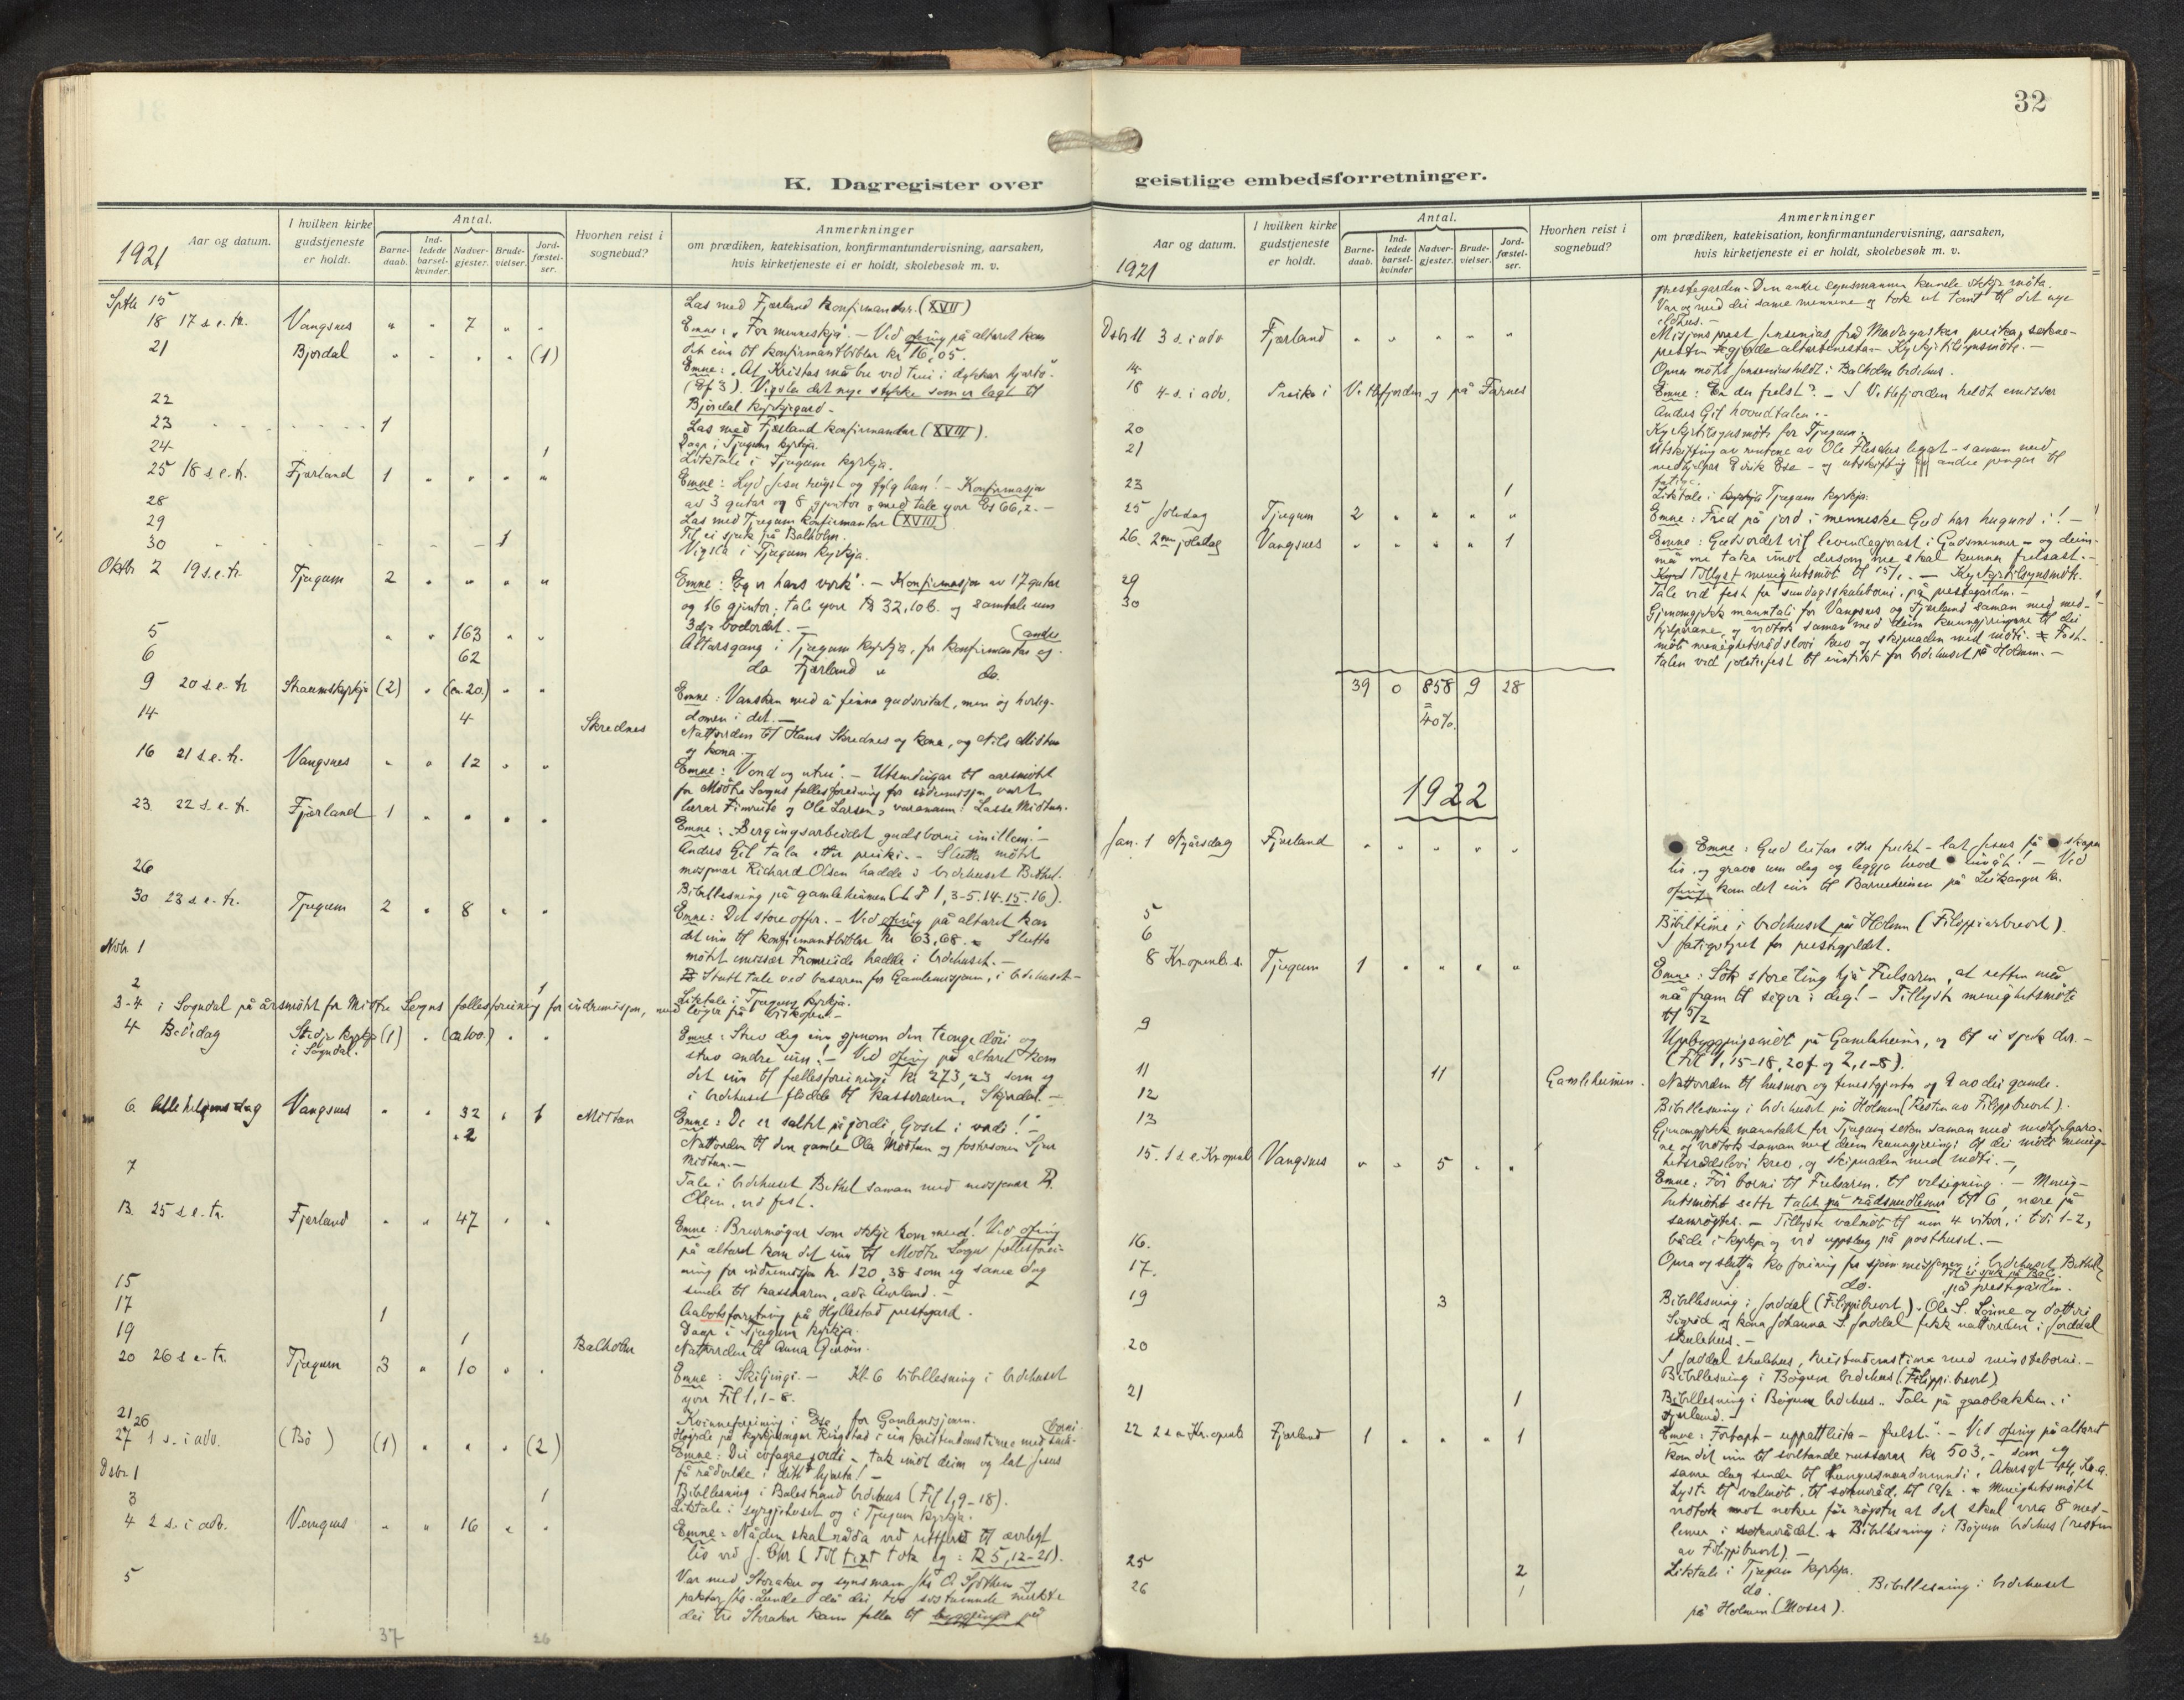 32
K. Dagregister over geistlige embedsforretninger.
Aar og datum.
I hvilken kirke gudstjeneste er holdt.
Antal.
Barne-daab.
Ind-ledede barsel-kvinder.
Nadver-gjester.
Brude-vielser.
Jord-fæstel-ser.
Hvorhen reist i sognebud?
Anmerkninger
om prædiken, katekisation, konfirmantundervisning, aarsaken,
hvis kirketjeneste ei er holdt, skolebesøk m. v.
1921
15 Las med Fjærland konfirmandar. (XVII)
18 17 s. e. tr. Vangsnes " " 7 " " Emne: "For menneskja". – Vid ofring på altaret kom
det inn til konfirmantbiblar kr 16,05.
21 Bjordal " " " " (1) Emne: "At Kristus må bu ved trui i dykkar hjarto".
(Ef 3). Vigsla det nye stykke som er lagt til
Bjordal kyrkjegard –
22 Las med Fjærland konfirmandar (XVIII).
23 1 Daap i Tjugum kyrkja.
24 1 Liktale i Tjugum kyrkja.
25 18 s. e. tr. Fjærland 1 " " " " Emne: Lyd Jesu røyst og fylg han! – Konfirmasjon
av 3 gutar og 8 gjentor, med tale yver Es 66,2. –
28 Las med Tjugum konfirmantar (XVIII)
29 Til ei sjuk på Balholm.
30 1 Vigsla i Tjugum kyrkja.
Oktbr 2 19 s. e. tr. Tjugum 2 " " " " Emne: Eg er hans verk". – Konfirmasjon av 17 gutar
og 16 gjentor; tale yver Ps 32,10b. og samtale um
3dje bodordet. –
5 " " 163 " " Altarsgang i Tjugum kyrkja, for konfirmantar og (andre
6 62 do Fjærland " do.
9 20 s. e. tr Straumskyrkja (2) " (ca 20.) " " Emne: Vansken med å finna gudsriket, men òg herleg-
domen i det. –
14 4 Skrednes Nattverden til Hans Skrednes og kona, og Nils Midtun
og kona.
16 21 s. e. tr. Vangsnes " " 12 " " Emne: "Vond og utru". – Utsendingar til aarsmötet
for Midtre Sogns fellesforeining for indremisjon vart
lærar Fimreite og Ole Larsen, varamann: Lasse Midtun.
23 22 s. e. tr. Fjærland 1 " " " " Emne: "Bergingsarbeidet gudsborni imillem." –
Anders Gil tala etter preiki. – Slutta mötet
misjonær Richard Olsen hadde i bedehuset Bethel.
26 Bibellesning på gamleheimen (1 P 1, 3–5. 14–15. 16).
30 23 s. e. tr. Tjugum 2 " 8 " " Emne: Det store offer. – Ved ofring på altaret kom
det inn til konfirmantbiblar kr 63,68. – Slutta
mötet emissær Framreide hadde i bedehuset. –
Novbr. 1 Stutt tale ved basaren for Gamlemisjonen, i bedehuset –
2 1 Liktale i Tjugum kyrkja.
3–4 i Sogndal på årsmötet for Midtre Sogns fellesforeining for indremisjon,
4 Bededag Stedje kyrkja i Sogndal. (1) " (ca 600.) " " Emne: Strev deg inn gjenom den tronge döri og
strev andre inn! – Ved ofring på altaret kom
det inn til fellesforeiningi kr 273,23 som eg
i bedehuset flidde til kasseraren, Skjerdal. –
6. Allehelgensdag Vangsnes " " 32 " 1 Midtun Emne: De er saltet på jordi, ljoset i verdi! –
" 2 Nattverden til den gamle Ola Midtun og fostersonen Sjur
Midtun. –
7 Tale i bedehuset Bethel saman med misjonær R.
Olsen, ved fest.
13. 25 s. e. tr. Fjærland " " 47 " " Emne: Brurmøyar som ikkje kom med! Ved ofring
på altaret kom det inn til Midtre Sogns fellesforei-
ning for indremisjon kr 120,38 som eg same dag
sende til kassaren, adr. Aurland. –
15 Aabotsforretning på Hyllestad prestgard.
17 1 Daap i Tjugum kyrkja.
19 1 Balholm Nattverden til Anna
20 26 s. e. tr. Tjugum 3 " 10 " " Emne: Skiljingi. – Kl. 6 bibellesning i bedehuset
yver Fil 1, 1–8.
21 Kvinneforeining i Ese, for Gamlemisjonen.
26 Høyrde på kyrkjesongar Ringstad i ein kristendomstime med borni
27 1 s. i adv. (Bö) (1) " " " (2) Emne: Dei fagre ordi – tak imot deim og lat Jesus
få rådvelde i ditt hjarta! –
Dsbr. 1 Bibellesning i Balestrand bedehus (Fil 1, 9–18).
3 1 Liktale i syrgjehuset og i Tjugum kyrkja.
4 2 s. i adv. Vangsnes " " 16 " " Emne: Nåden skal råda ved rettferd til ævelegt
liv ved J. Chr. (Til text tok eg: R 5, 12–21).
5 Var med Storaker og synsmann hr. O. Sjöthun og
hr. Lunde då dei two sistnemnde merkte
dei tre Storaker kann fella til bygginga på
37 26
Aar og datum.
1921
I hvilken kirke gudstjeneste er holdt.
Antal.
Barne-daab.
Ind-ledede barsel-kvinder
Nadver-gjester.
Brude-vielser.
Jord-fæstel-ser.
Hvorhen reist i sognebud?
Anmerkninger
om prædiken, katekisation, konfirmantundervisning, aarsaken,
hvis kirketjeneste ei er holdt, skolebesøk m. v.
prestegarden. Den andre synsmannen kunde ikkje möta.
Var og med dei same mennene og tok ut tomt til det nye
eldhus. –
Dsbr 11 3 s. i adv Fjærland " " " " " Misjonsprest Jensenius frå Madagaskar preika, sokne-
presten gjorde altartenesta – Kyrkjetilsynsmöte. –
14 Opna mötet Jensenius heldt i Balholm bedehus.
18 4 s. i adv. Preika i Vetlefjorden og på Farnes Emne: Er du frelst? – I Vetlefjorden heldt emissær
Anders Gil hovudtalen. –
20 Kyrkjetilsynsmöte for Tjugum.
21 Utskifting av rentene av Ole Flesches legat – saman med
medhjelpar Eirik Ese – og utskifting av andre pengar til
fatige.
23 1 Liktale i Tjugum kyrkja.
25 Joledag Tjugum 2 " " " " Emne: Fred på jord i menneske Gud har hugnad i! –
26. 2nn joledag Vangsnes " " " " 1 Emne: Gudsordet vil levendegjerast i Gudsmenner – og deim
må me taka imot dersom me skal kunna frelsast. –
Tillyst menighetsmöte til 15/1. – Kyrkjetilsynsmöte.
29 Tale ved fest for sundagsskuleborni, på prestegarden. –
30 Gjenomgjekk manntali for Vangsnes og Fjærland saman med med-
hjelparane, og vedtok saman med deim kunngjeringane til dei
möti menighetsrådslovi krev og skipnaden med möti. – Fest-
talen ved joletrefest til inntekt for bedehuset på Holmen. –
39 0 858 9 28
= 40%.
1922
Jan. 1 Nyårsdag Fjærland " " " " " Emne: Gud leitar etter frukt – lat Jesus få skapa
liv, og grava um deg og leggja hevd innåt! – Ved
ofring kom det inn til Barneheimen på Leikanger kr.
5 Bibeltime i bedehuset på Holmen (Filippiarbrevet).
6 I fatigstyret for prestegjeldet.
8 Kr. openb. s. Tjugum 1 " " " " Emne: Sök store ting hjå Frelsaren, at retten må
nå fram til siger i deg! – Tillyst menighetsmöte
til 5/2
9 Uppbyggingsmöte på Gamleheimen, og til ei sjuk der. –
(Fil 1, 15–18, 20f og 2, 1–8).
11 11 Gamleheimen. Nattverden til husmor og tenestgjenta og 9 av dei gamle.
12 Bibellesning i bedehuset på Holmen (Resten av Filippbrevet).
13 Gjenomgjekk manntalet for Tjugum sokn saman med medhjelpara-
ne og vedtok saman med deim kunngjeringi til dei möti menig-
hetsrådslovi krev, og skipnaden med möti. –
15. 1 s. e. Kr. openb Vangsnes " " 5 " " Emne: Før borni til Frelsaren, til velsigning. – Menig-
hetsmötet sette talet på rådsmedlemer til 6, nære på
samröystes. – Tillyste valmöte til um 4 vikor, i tidi 1–2,
både i kyrkja og ved uppslag på posthuset. –
16. Opna og slutta kv. foreining for sjömannsmisjonen, i bedehuset Bethel
17. do. på prestegarden. Til ei sjuk på Bale.
19 3 Bibellesning i Jordal (Filippibrevet). Ole S. Lönne og dotteri
Sigrid og kona Johanna S. Jordal fekk nattverden i Jordal
skulehus. –
20 I Jordal skulehus, kristendomstime med minsteborni. –
Bibellesning i Böyum bedehus (Filippi.brevet)
21 1 Bibellesning i Böyum bedehus. Tale på gravbakken i
Fjærland. –
22 2 s. e. Kr. openb Fjærland 1 " " " 1 Emne: "Fortapt – uppattleita – frelst." – Ved ofring på altaret
kom det inn til sveltande russarar kr 503,- som eg
same dag sende til Hungersnødnemndi, Akersgt 44, Kr.a.
Lyste til valmöte til sokneråd til 19/2. – Menighetsmötet
vedtok mot nokre få röyster at det skal vera 8 med-
lemer i soknerådet. – Bibellesning i Böyum bedehus (resten
av Filippibrevet). –
25 2 Liktale i Tjugum kyrkja.
26 1 do. Bibellesning i bedehuset
på Holmen (Moses).